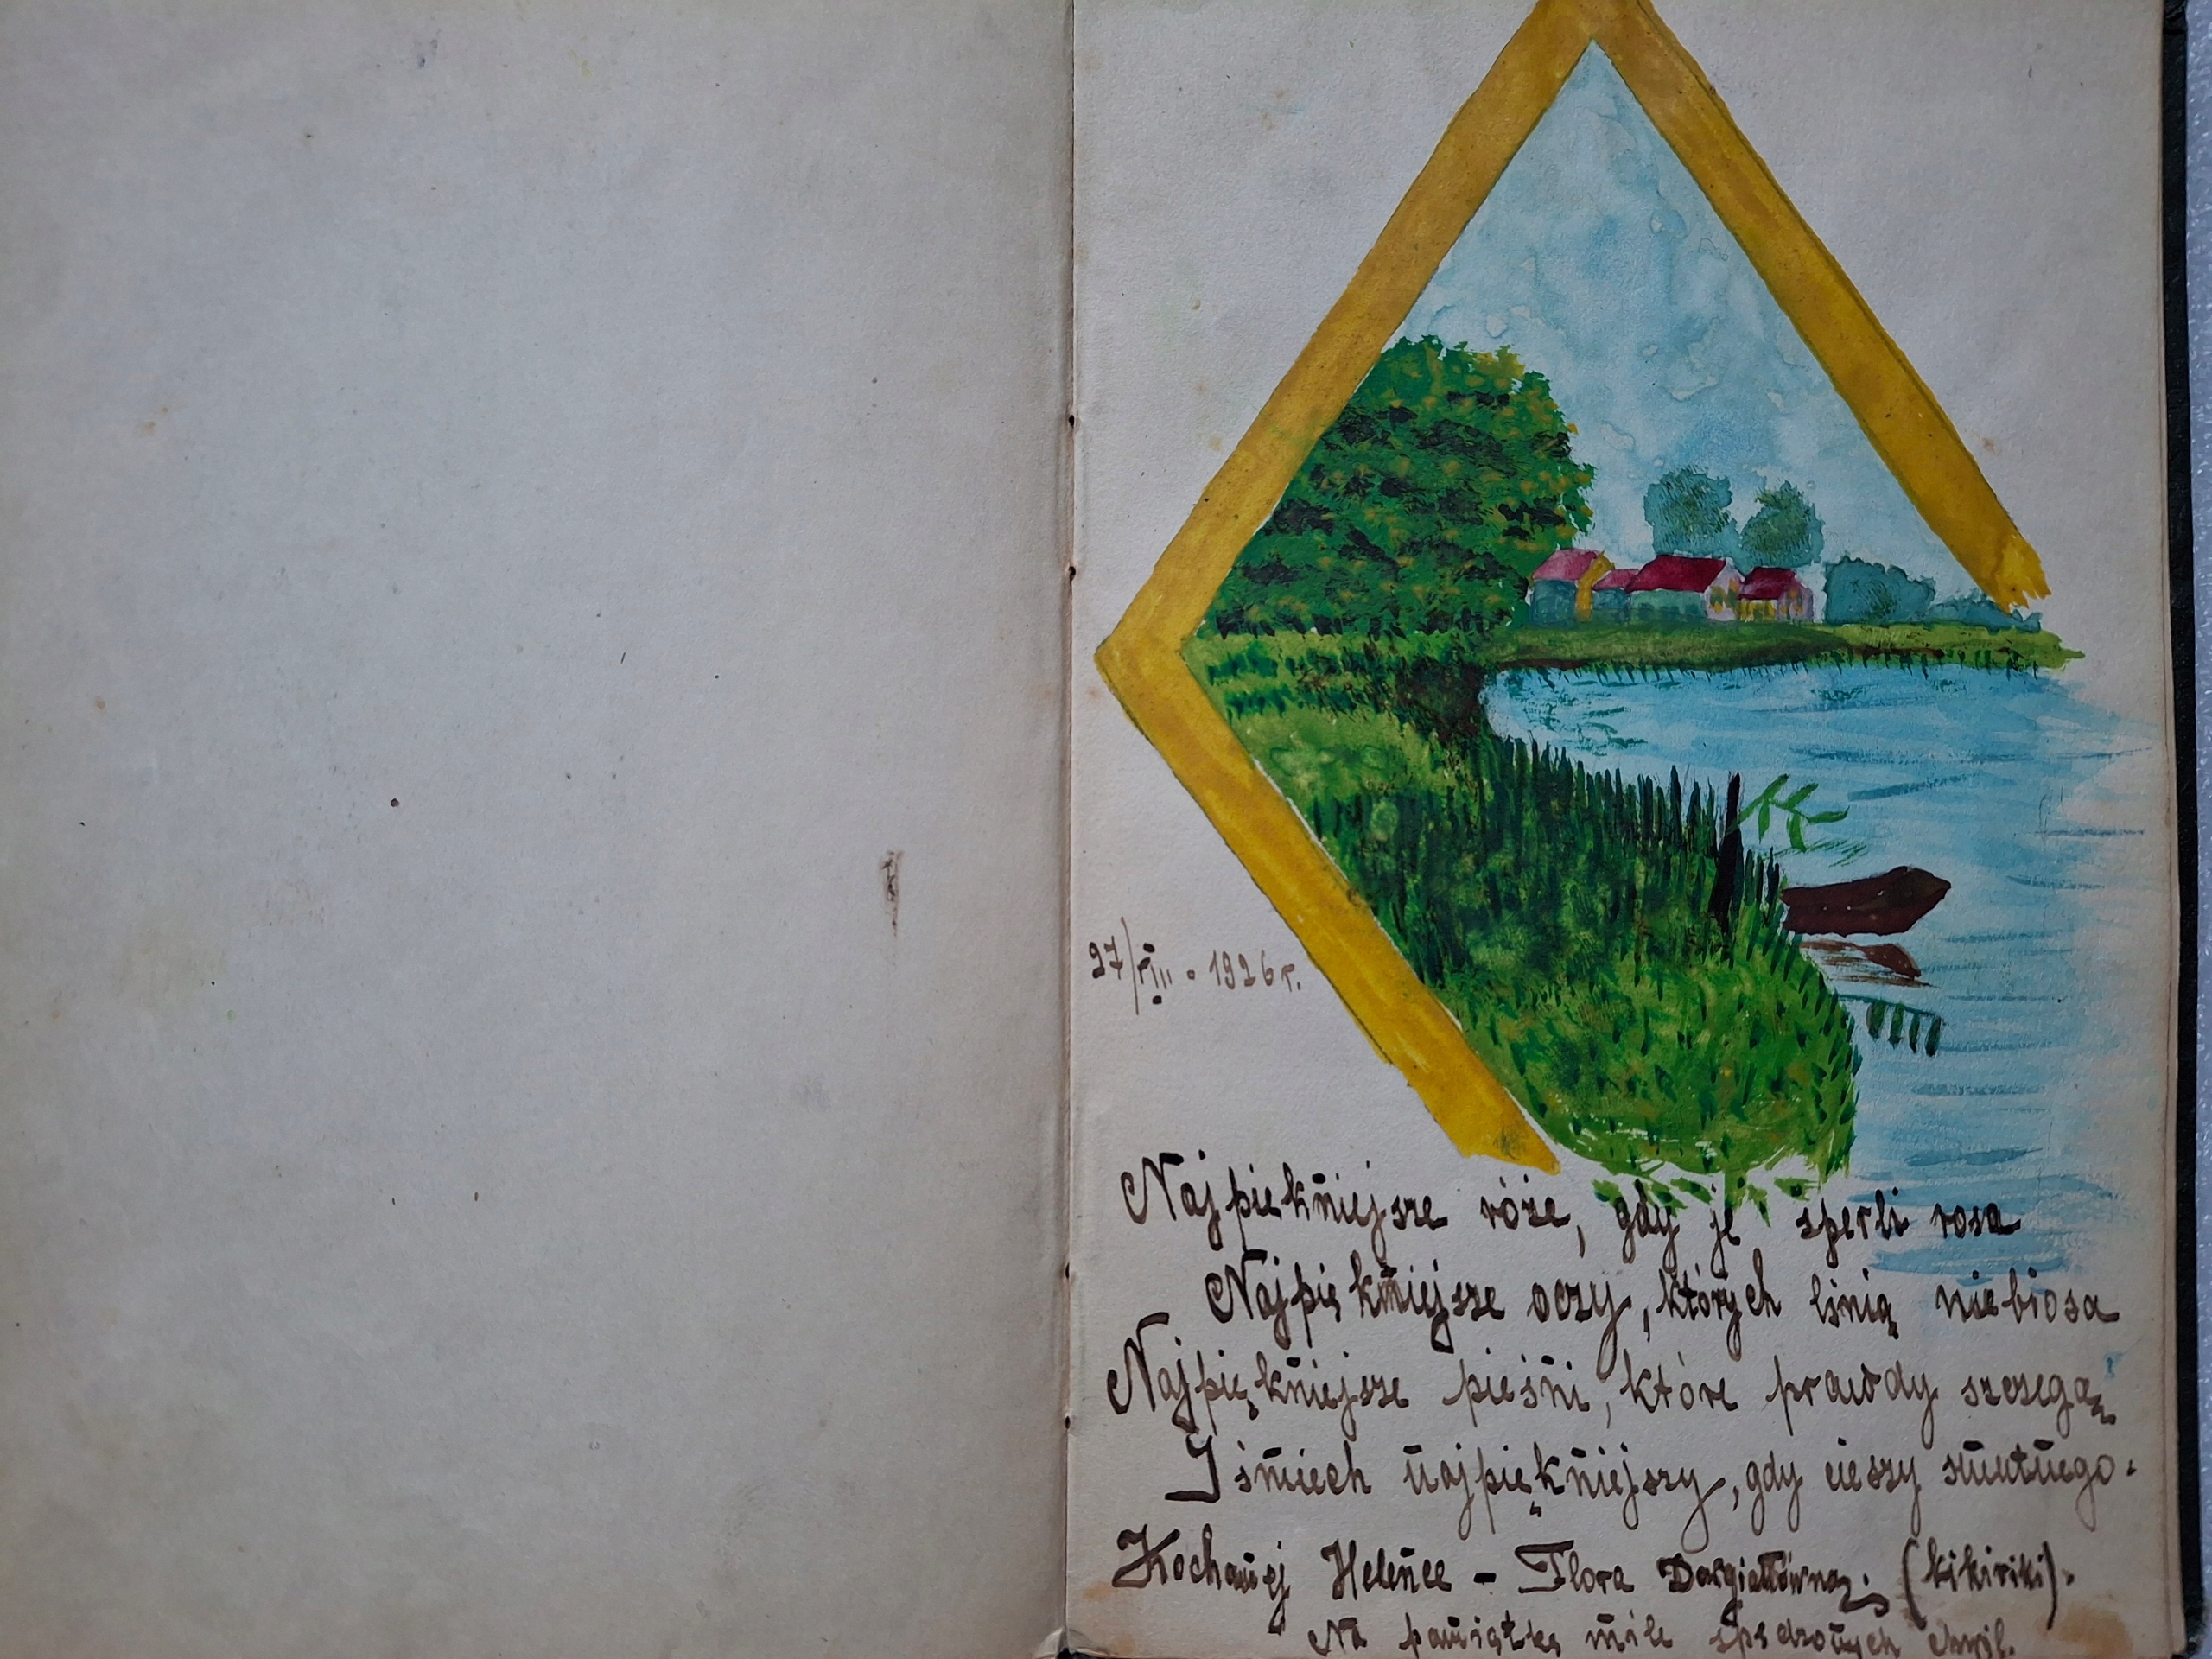 27/VIII. 1926 r.
Najpiekniejsze róże, gdy je sperli rosa
Najpiękniejsze oczy, których lśnią niebiosa
Najpiękniejsze pieśni, które prawdy szczegą
I śmiech najpiękniejszy, gdy cieszy smutnego.
Kochanej Helence - Flora Dargiałłówna. (kikiriki).
Na pamiątkę mile spędzonych chwil.